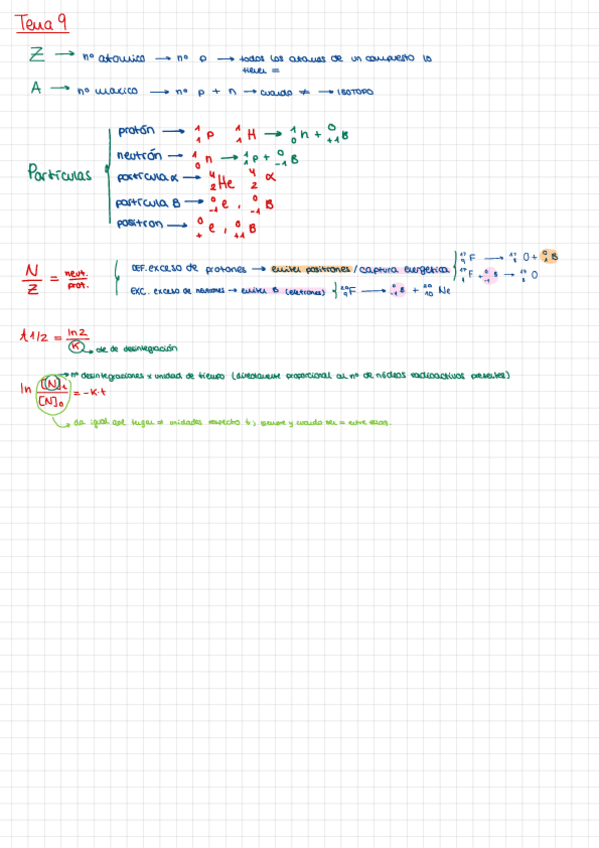 Tema 9
Z → nº atomico → nº p → todos los atomos de un compuesto lo tienen =
A → nº masico → nº p + n → cuando ≠ → ISOTOPO
Partículas
protón → ¹₁p ¹₁H → ¹₀n + ⁰₊₁B
neutrón → ¹₀n → ¹₁p + ⁰₋₁B
partícula α → ⁴₂He ⁴₂α
partícula B → ⁰₋₁e, ⁰₋₁B
positron → ⁰₊e, ⁰₊₁B
N/Z = neut./prot.
DEF. exceso de protones → emiten positrones / captura energetica
F → O + B
F + B → O
EXC. exceso de neutrones → emiten B (eletrones) ²⁰₉F → ⁰₋₁B + ²⁰₁₀Ne
t 1/2 = ln 2 / K
→ cte de desintegración
→ nº desintegraciones x unidad de tiempo (directamente proporcional al nº de núcleos radioactivos presentes)
ln [N]t / [N]₀ = -K·t
→ da igual que tengan ≠ unidades respecto t, siempre y cuando sean = entre ellas.